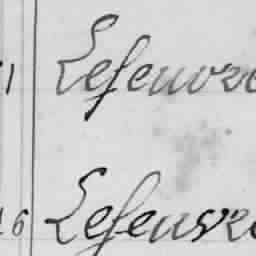 1 Lefeuvre
6 Lefeuvre